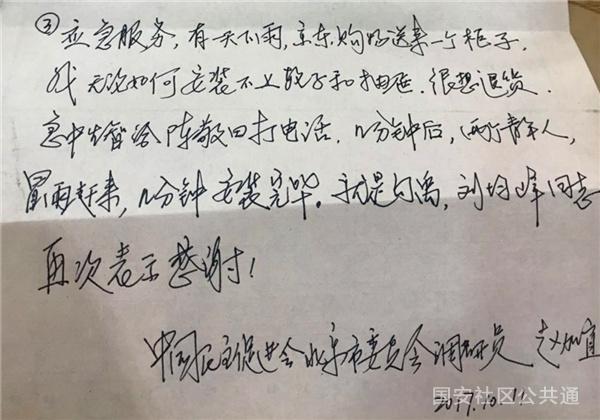 ③ 应急服务，有一天下雨，京东购物送来一个柜子，
我无论如何安装不上散子和抽屉，很想退货。
急中生智给陈敬田打电话，几分钟后，两个青年人，
冒雨赶来，几分钟安装完毕。就是闫禹，刘均峰同志
再次表示感谢！
中国民主促进会北京市委员会调研员 赵加宜
2017.10.
国安社区公共通